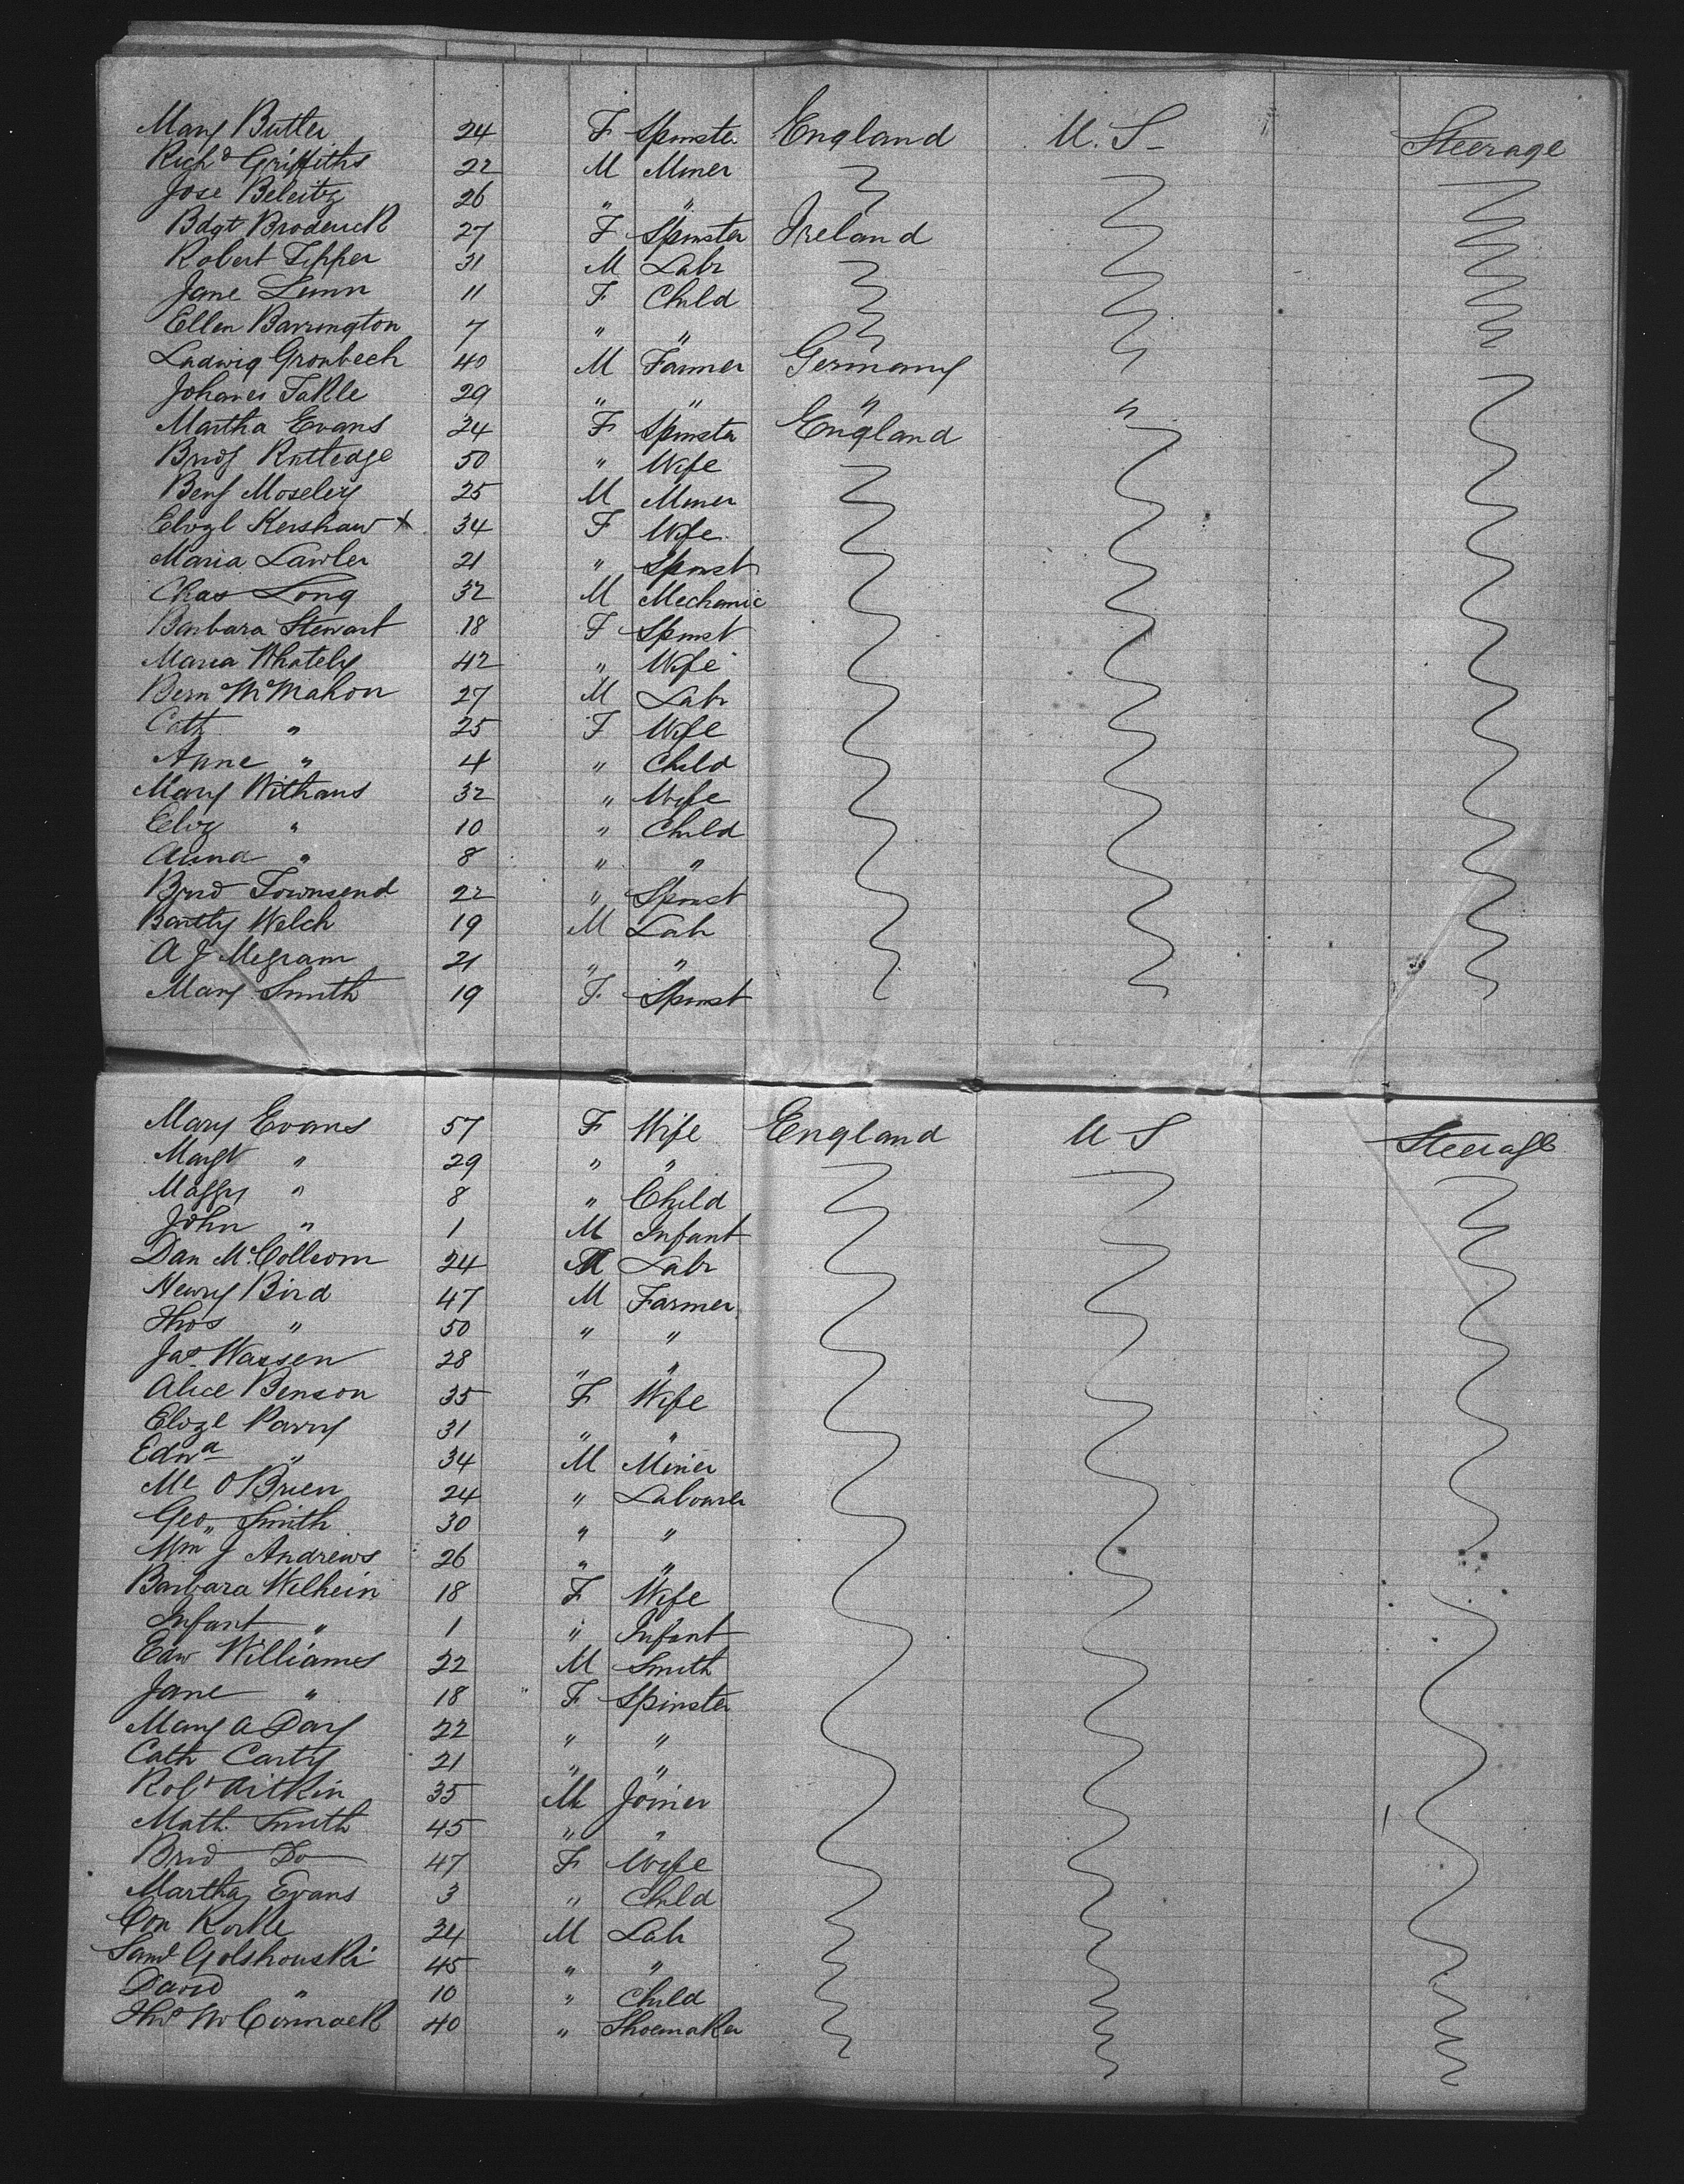 Mary Butler 24 F Spinster England U. S. Steerage
Richd Griffiths 22 M Miner
Jose Beleitz 26 " "
Bdgt Broderick 27 F Spinster Ireland
Robert Tipper 31 M Labr
Jane Lunn 11 F Child
Ellen Barrington 7 " "
Ludwig Gronbech 40 M Farmer Germany
Johanes Takle 29 " " " "
Martha Evans 24 F Spinster England
Bridg Rutledge 50 " Wife
Benj Moseley 25 M Miner
Elizgl Kershaw x 34 F Wife
Maria Lawler 21 " Spinst
Chas Long 32 M Mechanic
Barbara Stewart 18 F Spinst
Maria Whately 42 " Wife
Bern McMahon 27 M Labr
Cath " 25 F Wife
Anne " 4 " Child
Mary Withans 32 " Wife
Eliz " 10 " Child
Anna " 8 " "
Brid Townsend 22 " Spinst
Bartly Welch 19 M Labr
A J Megram 21 " "
Mary Smith 19 F Spinst
Mary Evans 57 F Wife England U S Steerage
Margt " 29 " "
Maggy " 8 " Child
John " 1 M Infant
Dan McColleom 24 M Labr
Henry Bird 47 M Farmer
Thos " 50 " "
Jas Wassen 28 " "
Alice Benson 35 F Wife
Elizl Parry 31 " "
Edwd " 34 M Miner
Ml O'Brien 24 " Labourer
Geo Smith 30 " "
Wm J Andrews 26 " "
Barbara Wilhein 18 F Wife
Infant " 1 " Infant
Edw Williames 22 M Smith
Jane " 18 F Spinster
Mary A Day 22 " "
Cath Carty 21 " "
Robt Aitkin 35 M Joiner
Math Smith 45 " "
Brid Do 47 F Wife
Martha Evans 3 " Child
Con 24 M Labr
Saml Golshouski 45 " "
David " 10 " Child
Thos McCormack 40 " Shoemaker